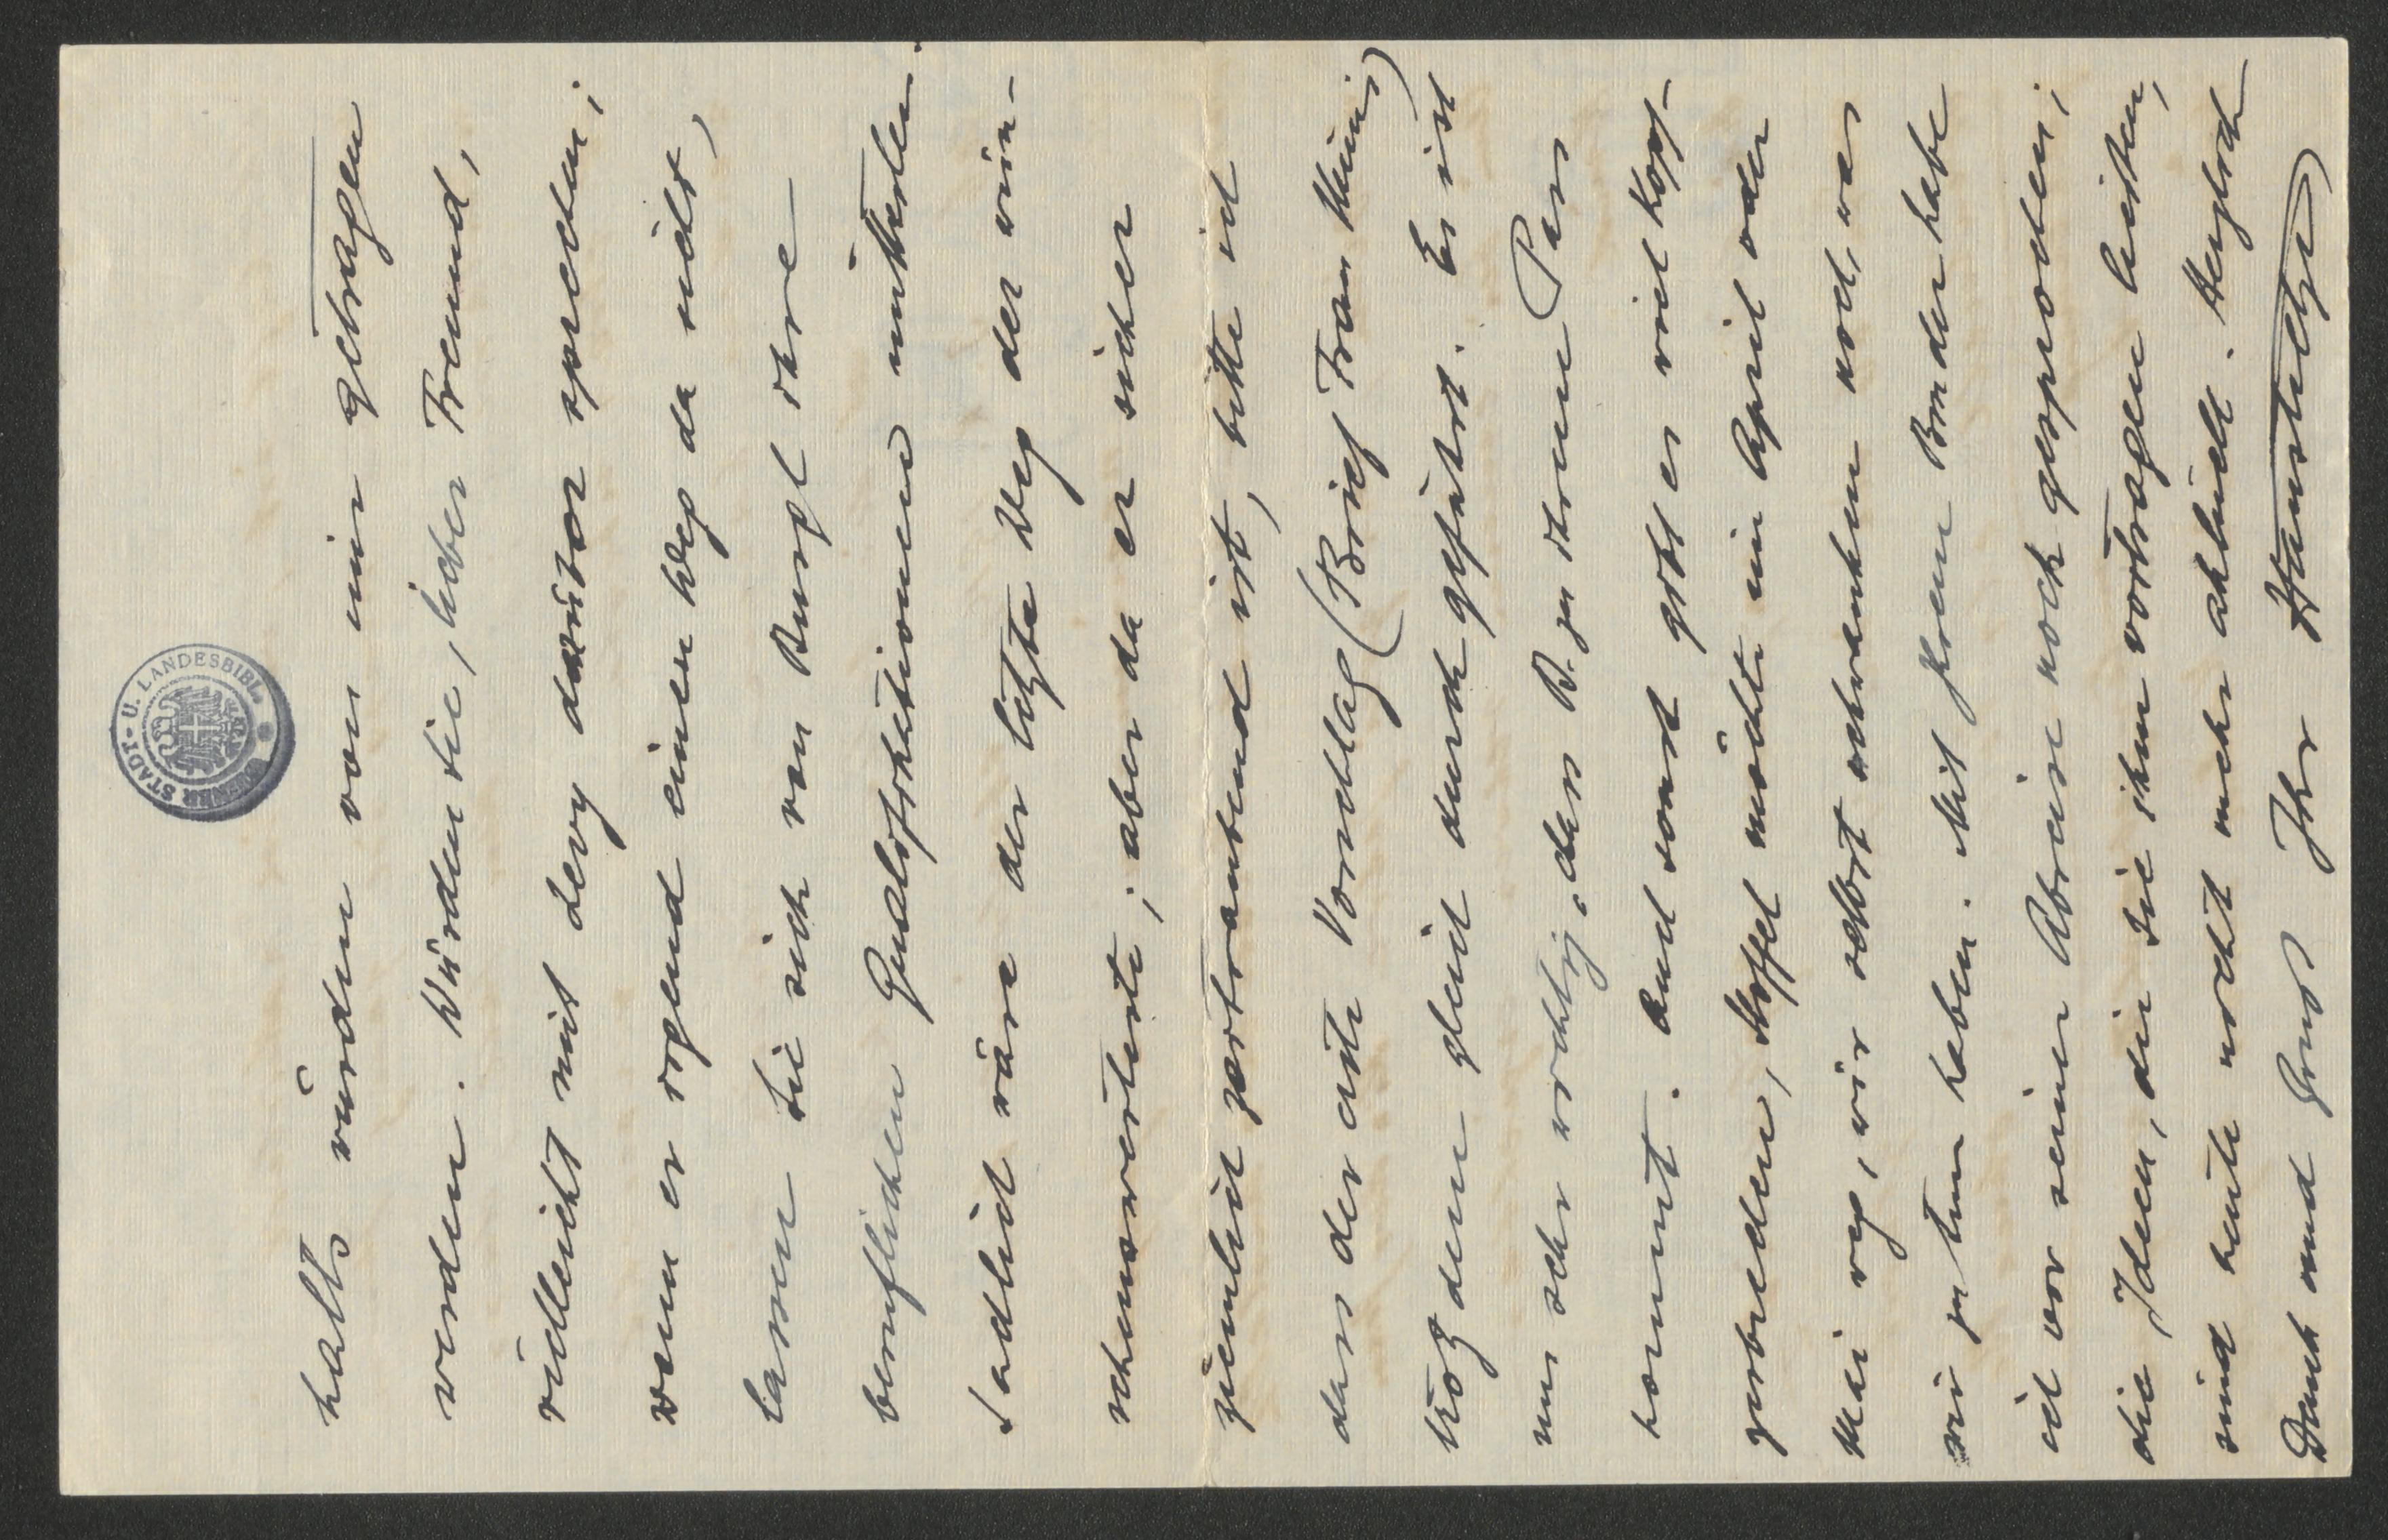 halts würden von mir getragen
werden. Würden Sie, lieber Freund,
vielleicht mit Levy darüber sprechen;
wenn er irgend einen Weg da sieht,
lassen Sie sich von Bungl ihre
beruflichen Qualifikationen mitteilen.
Sachlich wäre der letzte Weg der wün-
schenswerteste; aber da er sicher
ziemlich zeitraubend ist, bitte ich
dass der erste Vorschlag (Brief Frau Meiers)
trotzdem gleich durch geführt. Es ist
uns sehr wichtig, dass B. zu ihrem Pass
kommt. Auch sonst gibt es viel Kopf-
zerbrechen, Stoffel möchte im April oder
Mai weg, wir selbst schwanken noch, was
wir zu tun haben. Mit Ihrem Bruder habe
ich vor seiner Abreise noch gesprochen;
die Ideen, die Sie ihm vortragen liessen,
sind heute nicht mehr aktuell. Herzlich
Dank und Gruss Ihr